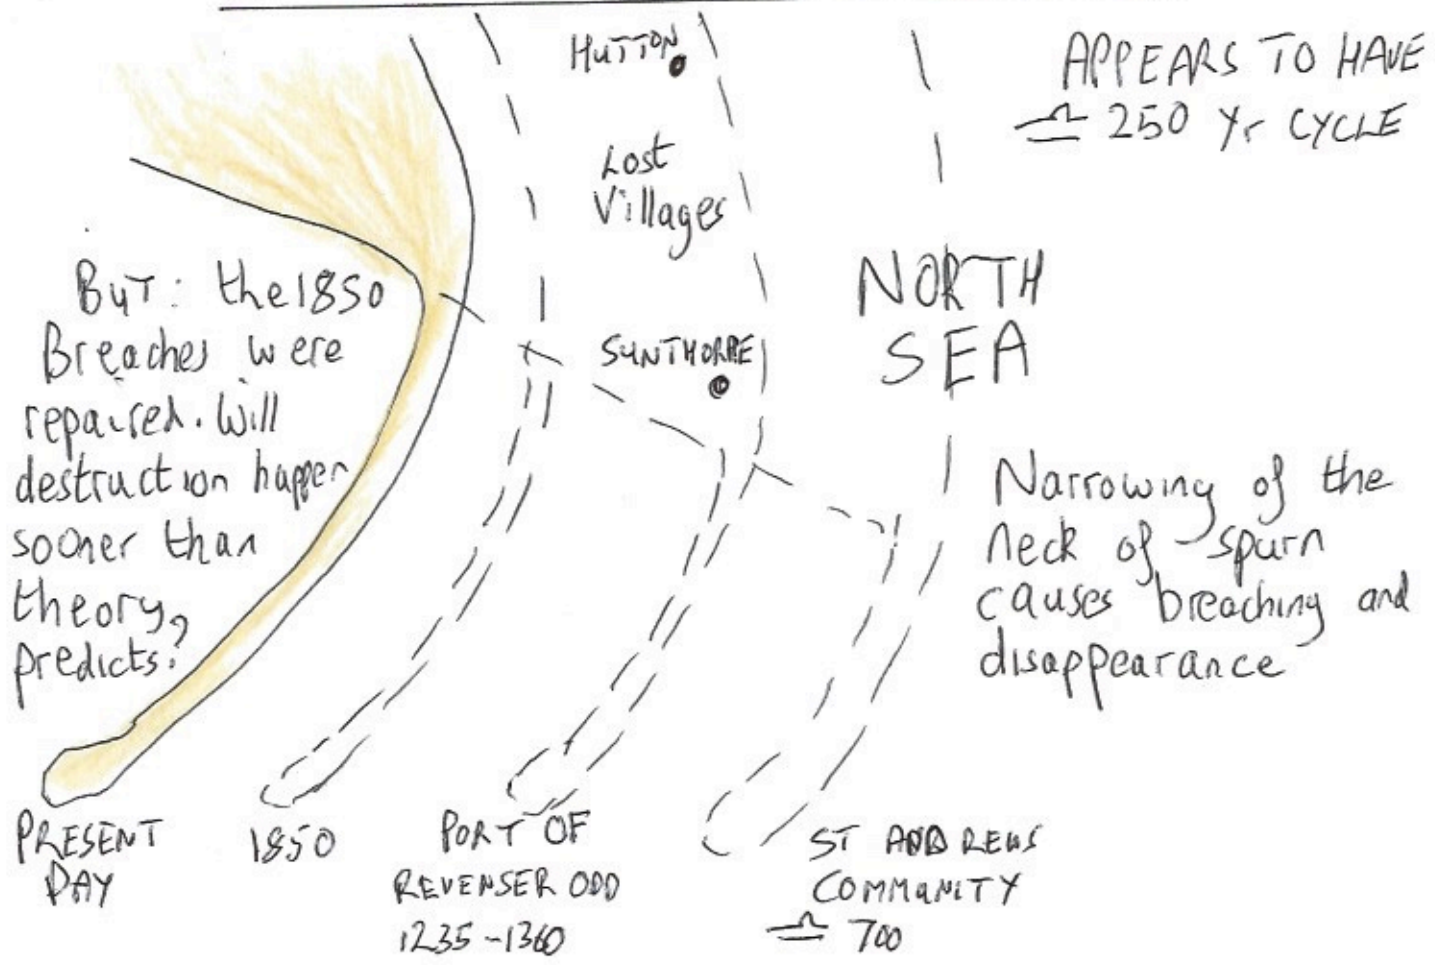 HUTTON
Lost
Villages
SUNTHORPE
APPEARS TO HAVE
≏ 250 Yr CYCLE
NORTH
SEA
BUT: the 1850
Breaches were
repaired. Will
destruction happen
sooner than
theory
predicts?
Narrowing of the
neck of spurn
causes breaching and
disappearance
PRESENT
DAY
1850
PORT OF
REVENSER ODD
1235-1360
ST ANDREWS
COMMUNITY
≏ 700